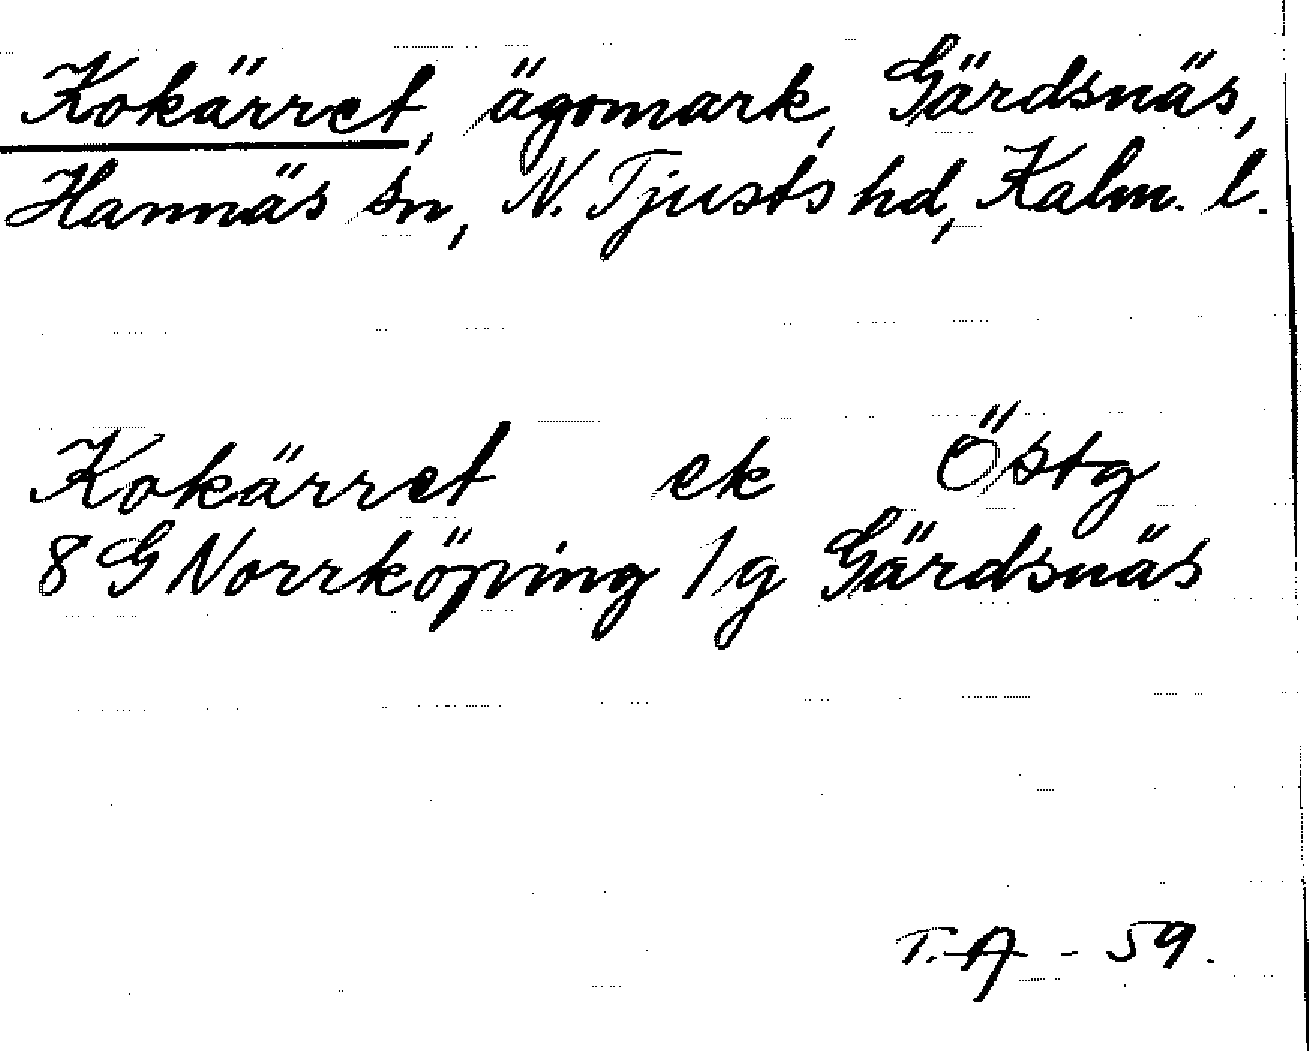 Kokärret, ägomark, Gärdsnäs,
Hannäs sn, N. Tjusts hd, Kalm. l.
Kokärret ek Östg
8 G Norrköping 1 g Gärdsnäs
T. A - 59.